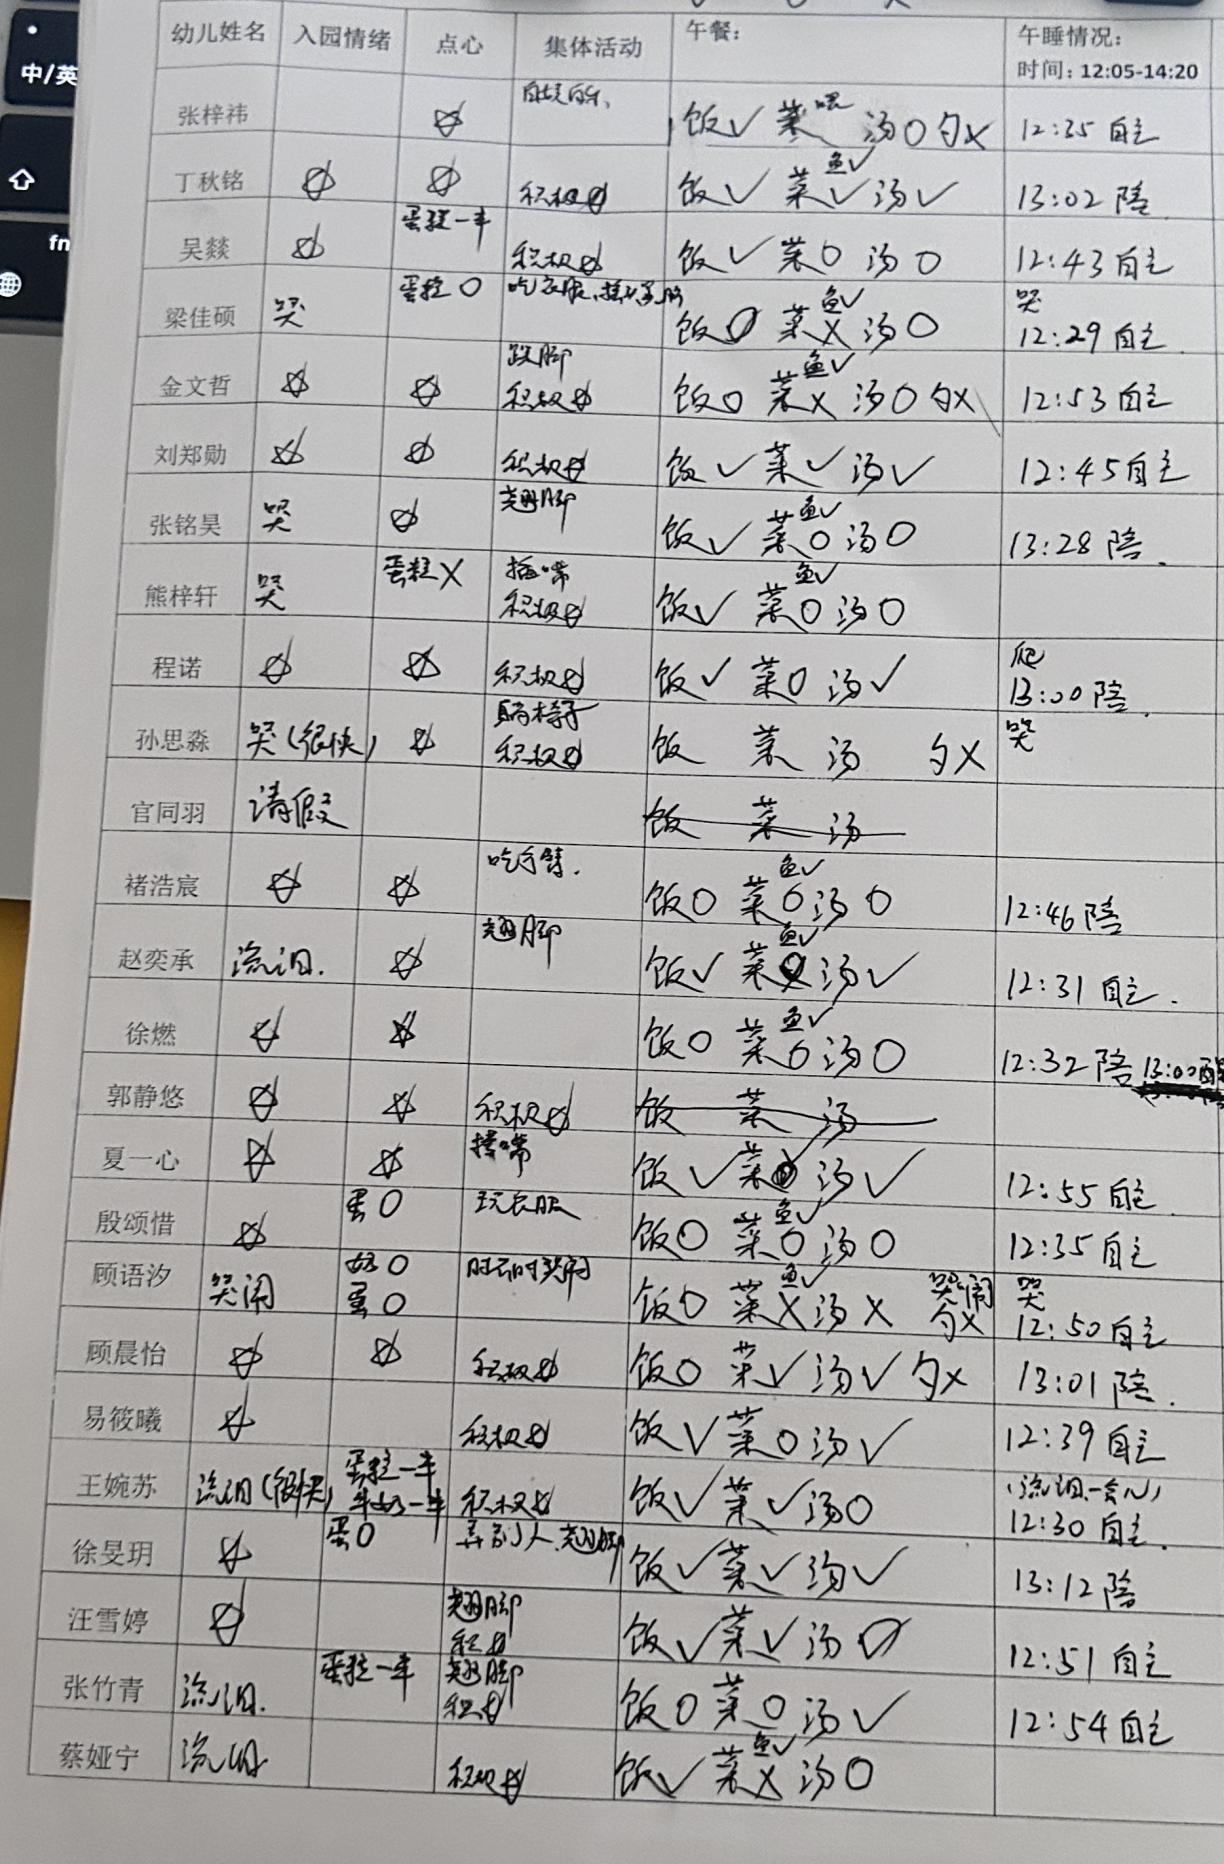 中/英
fn
幼儿姓名 入园情绪 点心 集体活动 午餐: 午睡情况:
时间: 12:05-14:20
张梓祎 自娱自乐、 饭✓ 菜 汤○ 勺× 12:35 自主
丁秋铭 积极 饭✓ 菜✓ 鱼✓ 汤✓ 13:02 陪
吴燚 蛋糕一半 积极 饭✓ 菜○ 汤○ 12:43 自主
梁佳硕 哭 蛋糕○ 吃衣服、 饭○ 菜× 鱼✓ 汤○ 哭
12:29 自主
金文哲 跷脚
积极 饭○ 菜× 鱼✓ 汤○ 勺× 12:53 自主
刘郑勋 积极 饭✓ 菜✓ 汤✓ 12:45 自主
张铭昊 哭 翘脚 饭✓ 菜○ 鱼✓ 汤○ 13:28 陪
熊梓轩 哭 蛋糕× 插嘴
积极 饭✓ 菜○ 鱼✓ 汤○
程诺 积极 饭✓ 菜○ 汤✓ 爬
13:00 陪
孙思淼 哭(很快) 椅子
积极 饭 菜 汤 勺× 哭
官同羽 请假 饭 菜 汤
褚浩宸 吃手臂. 饭○ 菜○ 鱼✓ 汤○ 12:46 陪
赵奕承 流泪. 翘脚 饭✓ 菜 鱼✓ 汤✓ 12:31 自主
徐燃 饭○ 菜○ 鱼✓ 汤○ 12:32 陪 13:00醒
郭静悠 积极 饭 菜 汤
夏一心 插嘴 饭✓ 菜 汤✓ 12:55 自主
殷颂惜 蛋○ 玩衣服 饭○ 菜○ 鱼✓ 汤○ 12:35 自主
顾语汐 哭闹 奶○
蛋○ 时不时哭闹 饭○ 菜× 鱼✓ 汤× 哭闹
勺× 哭
12:50 自主
顾晨怡 积极 饭○ 菜✓ 汤✓ 勺× 13:01 陪
易筱曦 积极 饭✓ 菜○ 汤✓ 12:39 自主
王婉苏 流泪(很快) 蛋糕一半
牛奶一半 积极 饭✓ 菜✓ 汤○ (流泪一会儿)
12:30 自主
徐旻玥 蛋○ 弄别人、翘脚 饭✓ 菜✓ 汤✓ 13:12 陪
汪雪婷 翘脚
积 饭✓ 菜✓ 汤○ 12:51 自主
张竹青 流泪. 蛋糕一半 翘脚
积 饭○ 菜○ 汤✓ 12:54 自主
蔡娅宁 流泪 积极 饭✓ 菜× 鱼✓ 汤○